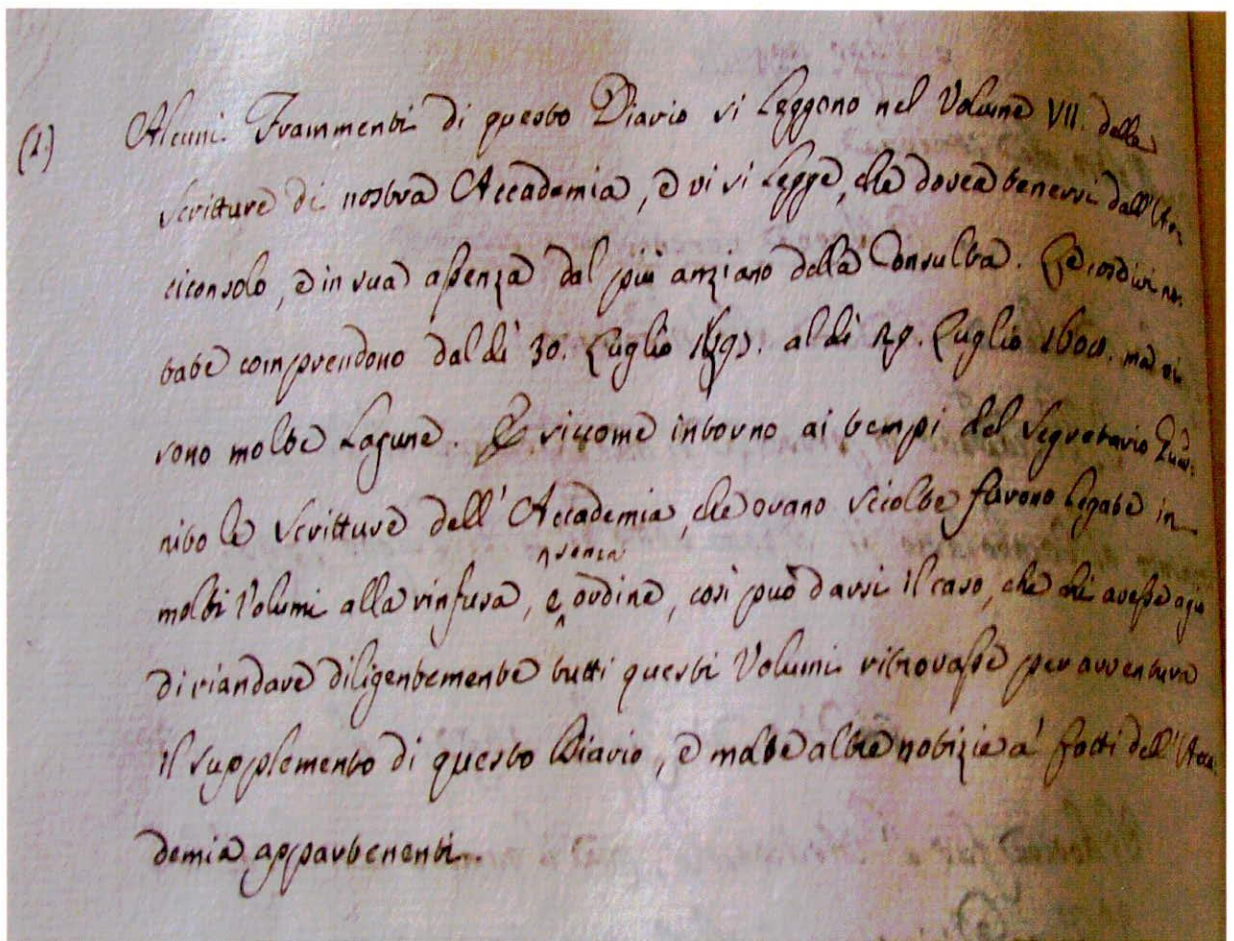 (1.) Alcuni Frammenti di questo Diario si leggono nel Volume VII. delle
Scritture di nostra Accademia, e vi si legge, che dovea tenersi dall'Ar-
ciconsolo, e in sua assenza dal più anziano della Consulta.
tate comprendono dal dì 30. Luglio al dì 29. Luglio 1600. ma vi
sono molte Lagune. E siccome intorno ai tempi del Segretario
le Scritture dell'Accademia, che erano sciolte furono legate in
molti Volumi alla rinfusa, e senza ordine, così può darsi il caso, che chi avesse agio
di riandare diligentemente tutti questi Volumi ritrovasse per avventura
il supplemento di questo Diario, e molte altre notizie a' fatti dell'Acca-
demia appartenenti.